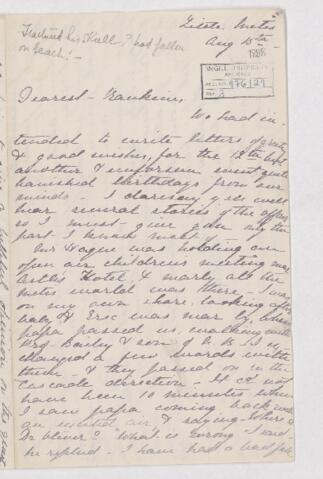 Fractured his skull? had fallen
on beach!
Little Metis
Aug 15th
1888
McGILL UNIVERSITY
ARCHIVES
ACC. NO. 976/27
REF. 2
Dearest Frankie,
We had in-
tended to write letters of
& good wishes, for the 12th but
another & unforeseen event quite
banished birthdays from our
minds - I daresay you will
hear several stories of the affair
so I must give you only the
part I know most of
Mr was holding an
open air childrens meeting near
Hotel, & nearly all the
Metis world was there - I was
on my own chair, looking after
baby & Eric was near by, when
papa passed us, walking with
Mrs Bailey & son of I ex-
changed a few words with
them - & they passed on in the
Cascade direction - It cd not
have been 10 minutes when
I saw papa coming back with
an excited air & saying
Dr Oliver? "What is wrong" I said
he replied - I have had a bad fall